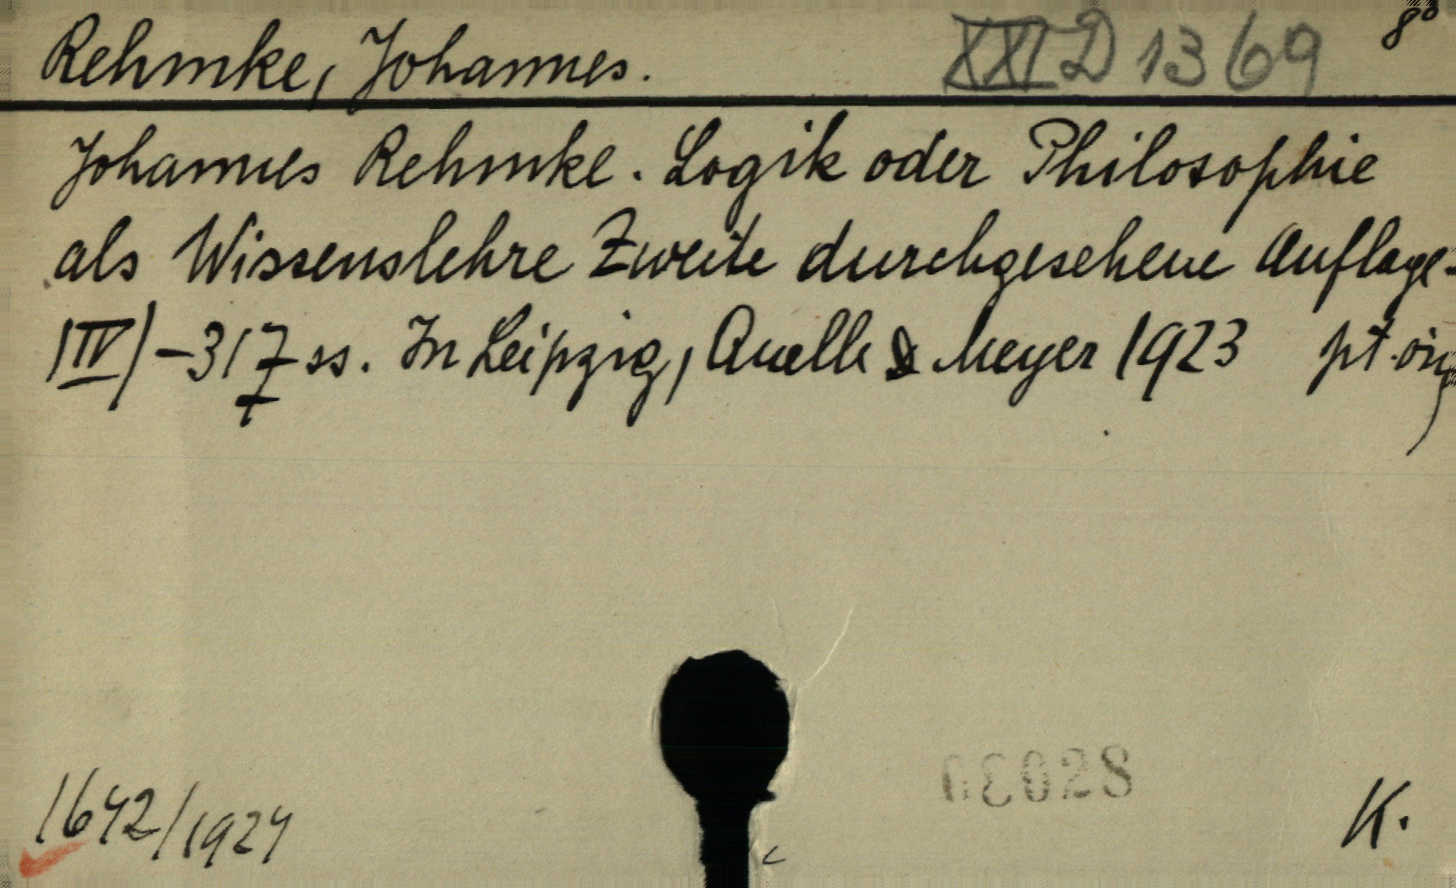 Rehmke, Johannes. XXI D 1369 8°
Johannes Rehmke. Logik oder Philosophie
als Wissenslehre Zweite durchgesehene Auflage-
|IV|-317 ss. In Leipzig, Quelle & Meyer 1923 pt. orig
1642/1924
K.